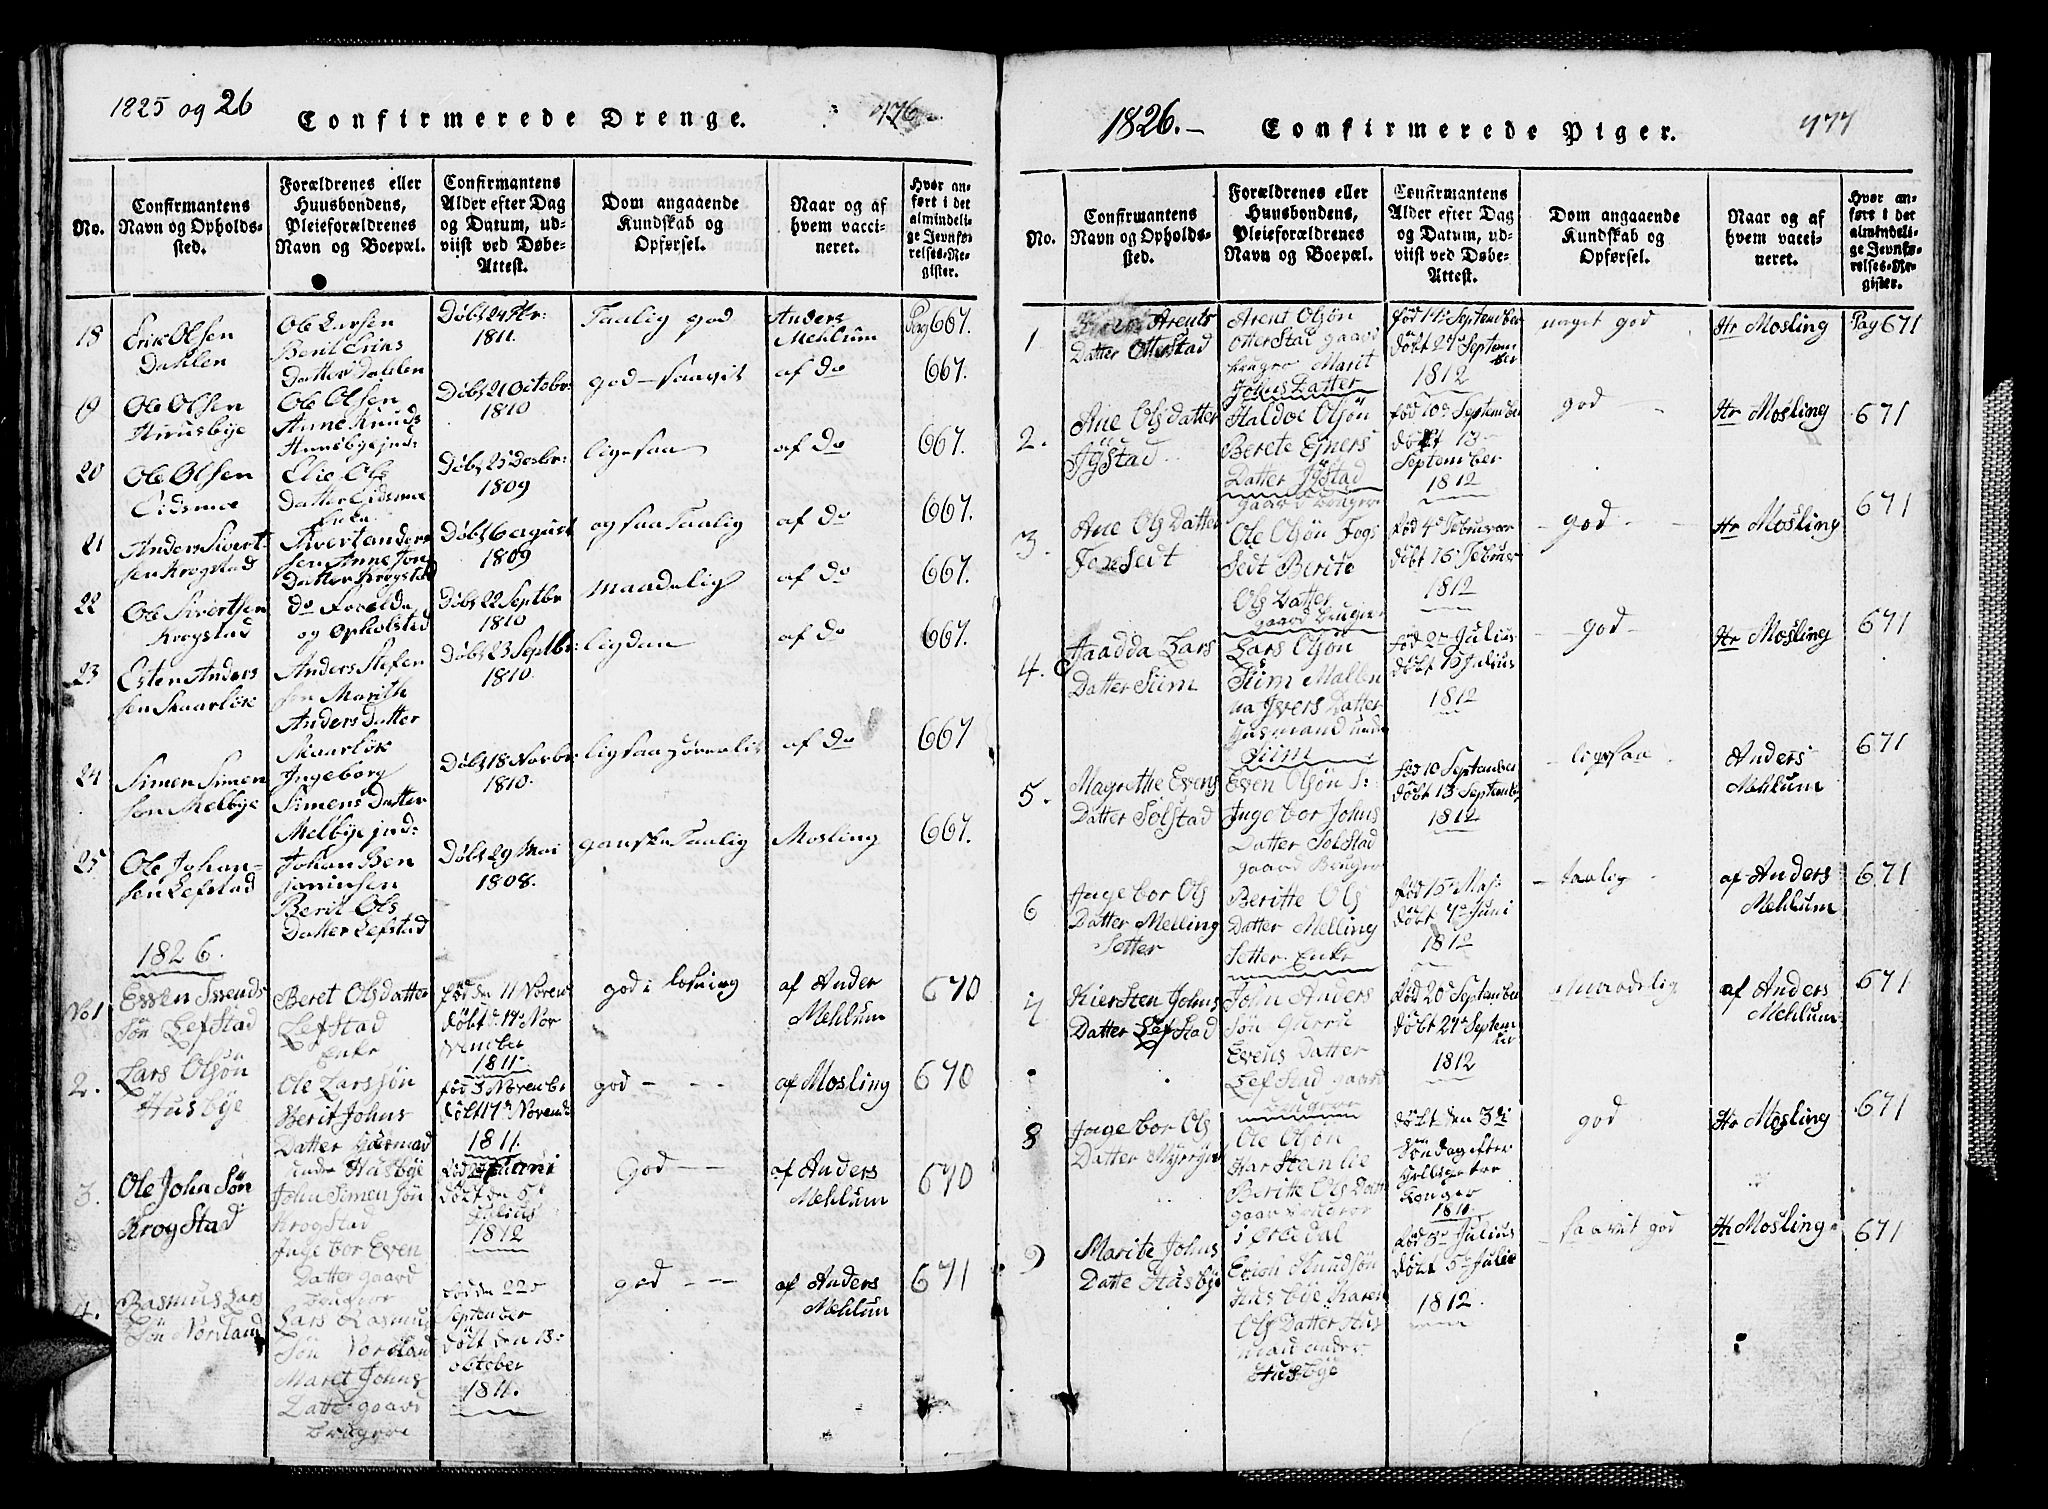 1825 og 26
Confirmerede Drenge.
476
No.
Confirmantens
Navn og Opholds-
sted.
Forældrenes eller
Huusbondens,
Pleieforældrenes
Navn og Boepæl.
Confirmantens
Alder efter Dag
og Datum, ud-
viist ved Døbe-
Attest.
Dom angaaende
Kundskab og
Opførsel.
Naar og af
hvem vacci-
neret.
Hvor an-
ført i det
almindeli-
ge Jevnfø-
relses-Re-
gister.
18
Erik Olsen
Dahlen
Ole Larsen
Berit Erins
Datter Dahlen
Døbt 24
1811.
Taalig god
Anders
Mehlum
Pag 667.
19
Ole Olsen
Huusbye
Ole Olsen
Anne Knuds
Huusbye ind:
Døbt 21 Octobr:
1810
god - saavit
af do
667.
20
Ole Olsen
Eidsmoe
Elie Ols
Datter Eidsmoe
Enke
Døbt 25 Decbr:
1809
ligesaa
af do
667.
21
Anders Sivert-
sen Krogstad
Sivert Anders
sen Anne Jons
Datter Krogstad
Døbt 6 august
1809
ogsaa Taalig
af do
667.
22
Ole Sivertsen
Krogstad
do Forældre
og Opholsted
Døbt 22 Septbr
1810
maadelig
af do
667.
23
Esten Anders
sen Skaarløke
Anders Stefen
sen Marith
Anders Datter
Skaarløke
Døbt 23 Septbr:
1810.
ligedan
af do
667.
24
Simen Simen
sen Melbye
Ingeborg
Simens Datter
Melbye ind:
Døbt 18 Novbr:
1810.
af do
667
25
Ole Johan-
sen Lefstad
Johan Ben
jaminsen
Berit Ols
Datter Lefstad
Døbt 29 Mai
1808.
ganske Taalig
Mosling
667.
1826.
No 1
Essten Svends
Søn LefStad
Beret Olsdatter
LefStad
Enke
fød den 11 Novem
døbt 17 No
vember
1811.
god i løsning
af Ander
Mehlum
670
2.
Lars Olsøn
Husbye
Ole Larssøn
Berit Johns
Datter Huusmad
under Husbye
fød 3 Novenbr
døbt 17 Novenb
1811.
god - - -
af Mosling
670
3.
Ole John Søn
KrogStad
John Simen Søn
KrogStad
Ingebor Even
Datter gaard
brugere
døbt den 5t
Julius
1812
God - -
af Anders
Mehlum
670
4.
Rasmus Lars
Søn Norlland
Lars Rasmus
Søn Norlland
Maret Johns
Datte gaard
brugere
fød den 22
September
døbt den 13
october
1811.
god - - -
af Anders
Mehlum
671
1826.-
Confirmerede Piger.
477
No.
Confirmantens
Navn og Opholds-
sted.
Forældrenes eller
Huusbondens,
Pleieforældrenes
Navn og Boepæl.
Confirmantens
Alder efter Dag
og Datum, ud-
viist ved Døbe-
Attest.
Dom angaaende
Kundskab og
Opførsel.
Naar og af
hvem vacci-
neret.
Hvor an-
ført i det
almindeli-
ge Jevnfø-
relses-Re-
gister.
1
Arents
Datter OtterStad
Arent Olsøn
OtterStad gaard
bruger Marit
Johus Datter
fød 14 September
døbt 27 Septem
ber
1812
meget god
Hr Mosling
Pag 671
2.
Ane Ols datter
Jystad
Haldoe Olsøn
Berete Ejners
Datter Jystad
gaard brugere
fød 10 September
døbt 13
September
1812
god -
Hr Mosling
671
3.
Ane Ols Datter
Ole Olsøn Fogs
Sedt Berite
Ols Datter
gaard bruger
fød 4 Februar
døbt 16 Februar
1812
- god -
Hr Mosling
671
4.
Jaadda Lars
Datter Siim
Lars Olsøn
Siim Malen
aa Jvers Datter
Husmand under
Siim
fød 2 Julius
døbt 15 Julius
1812
- god -
Hr Mosling
671
5.
Magrethe Evens
Datter Solstad
Even Olsøn S:
Ingebor Johns
Datter SolStad
gaard Bruger
fød 10 September
døbt 13 Septemb
1812
- ligesaa
Anders
Mehlum
671
6
Ingebor Ols
Datter Melling
Setter
Beritte Ols
Datter Melling
Setter Enke
fød 15 Maj:
døbt 7 Juni
1812
- taalig -
af Anders
Mehlum
671
7
Kiersten Johns
Datter LefStad
John Anders
Søn Gurru
Evens Datter
LefStad gaard
brugere
fød 20 September
døbt 27 Septem
ber
1812
maadelig
af Anders
Mehlum
671
8
Ingebor Ols
Datter
Ole Olsøn
Beritte Ols Datt
gaard bruger
døbt den 3de
Søndag efter
Helligetre
Konger
1811.
god
Hr Mosling
671
9
Marite Johns
Datte Husbye
Erich Knudsøn
Husbye Karen
Ols Datter Hus
mand under
Husbye
fød 3 Julius
døbt 5 Julie
1812.
- saavit god
Hr Mosling
671